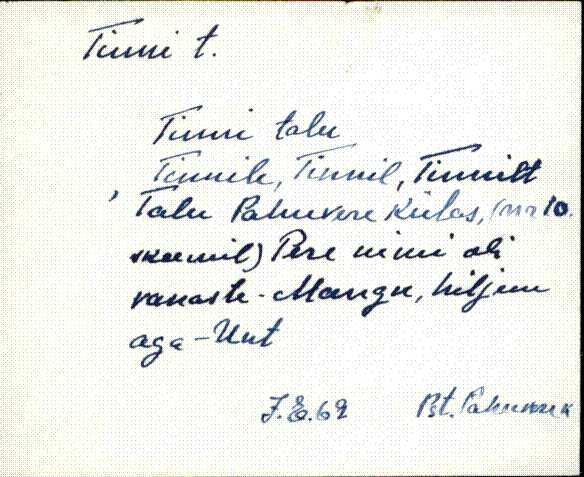 Tinni t.
Tinni talu
Tinnile, Tinnil, Tinnilt
Talu Pahuvere külas, (nr 10.
skeemil) Pere nimi oli
vanaste - Mangu, hiljem
aga - Unt
J.E. 62 Pst. Pahuvere k